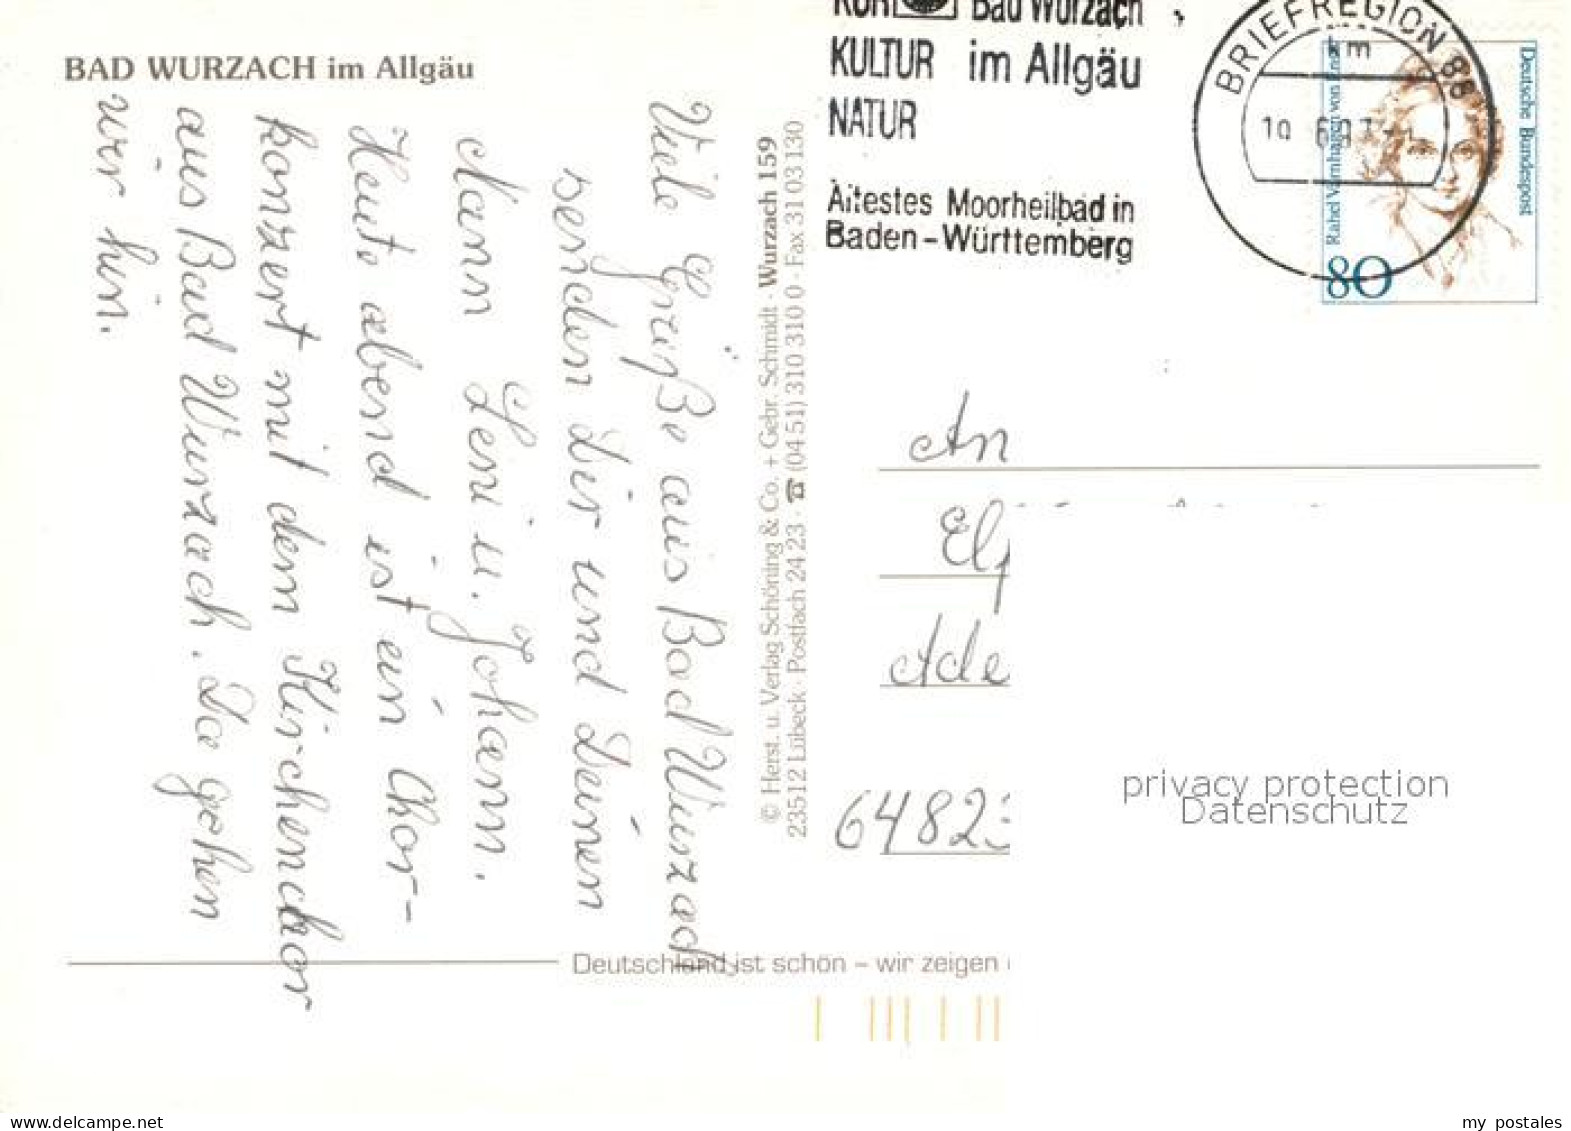 BAD WURZACH im Allgäu
Viele Grüße aus Bad Wurzach
senden Dir und Deinen
Mann Leni u. Johann.
Heute abend ist ein Chor-
konzert mit dem Kirchenchor
aus Bad Wurzach. Da gehen
wir hin.
© Herst. u. Verlag Schöning & Co. + Gebr. Schmidt · Wurzach 159
23512 Lübeck · Postfach 24 23 · ☎ (04 51) 310 310 0 · Fax 31 03 130
KUR Bad Wurzach
KULTUR im Allgäu
NATUR
Ältestes Moorheilbad in
Baden-Württemberg
BRIEFREGION 88
km
Deutsche Bundespost
Rahel Varnhagen von Ense
80
An
64823
privacy protection
Datenschutz
Deutschland ist schön – wir zeigen
www.delcampe.net
my_postales